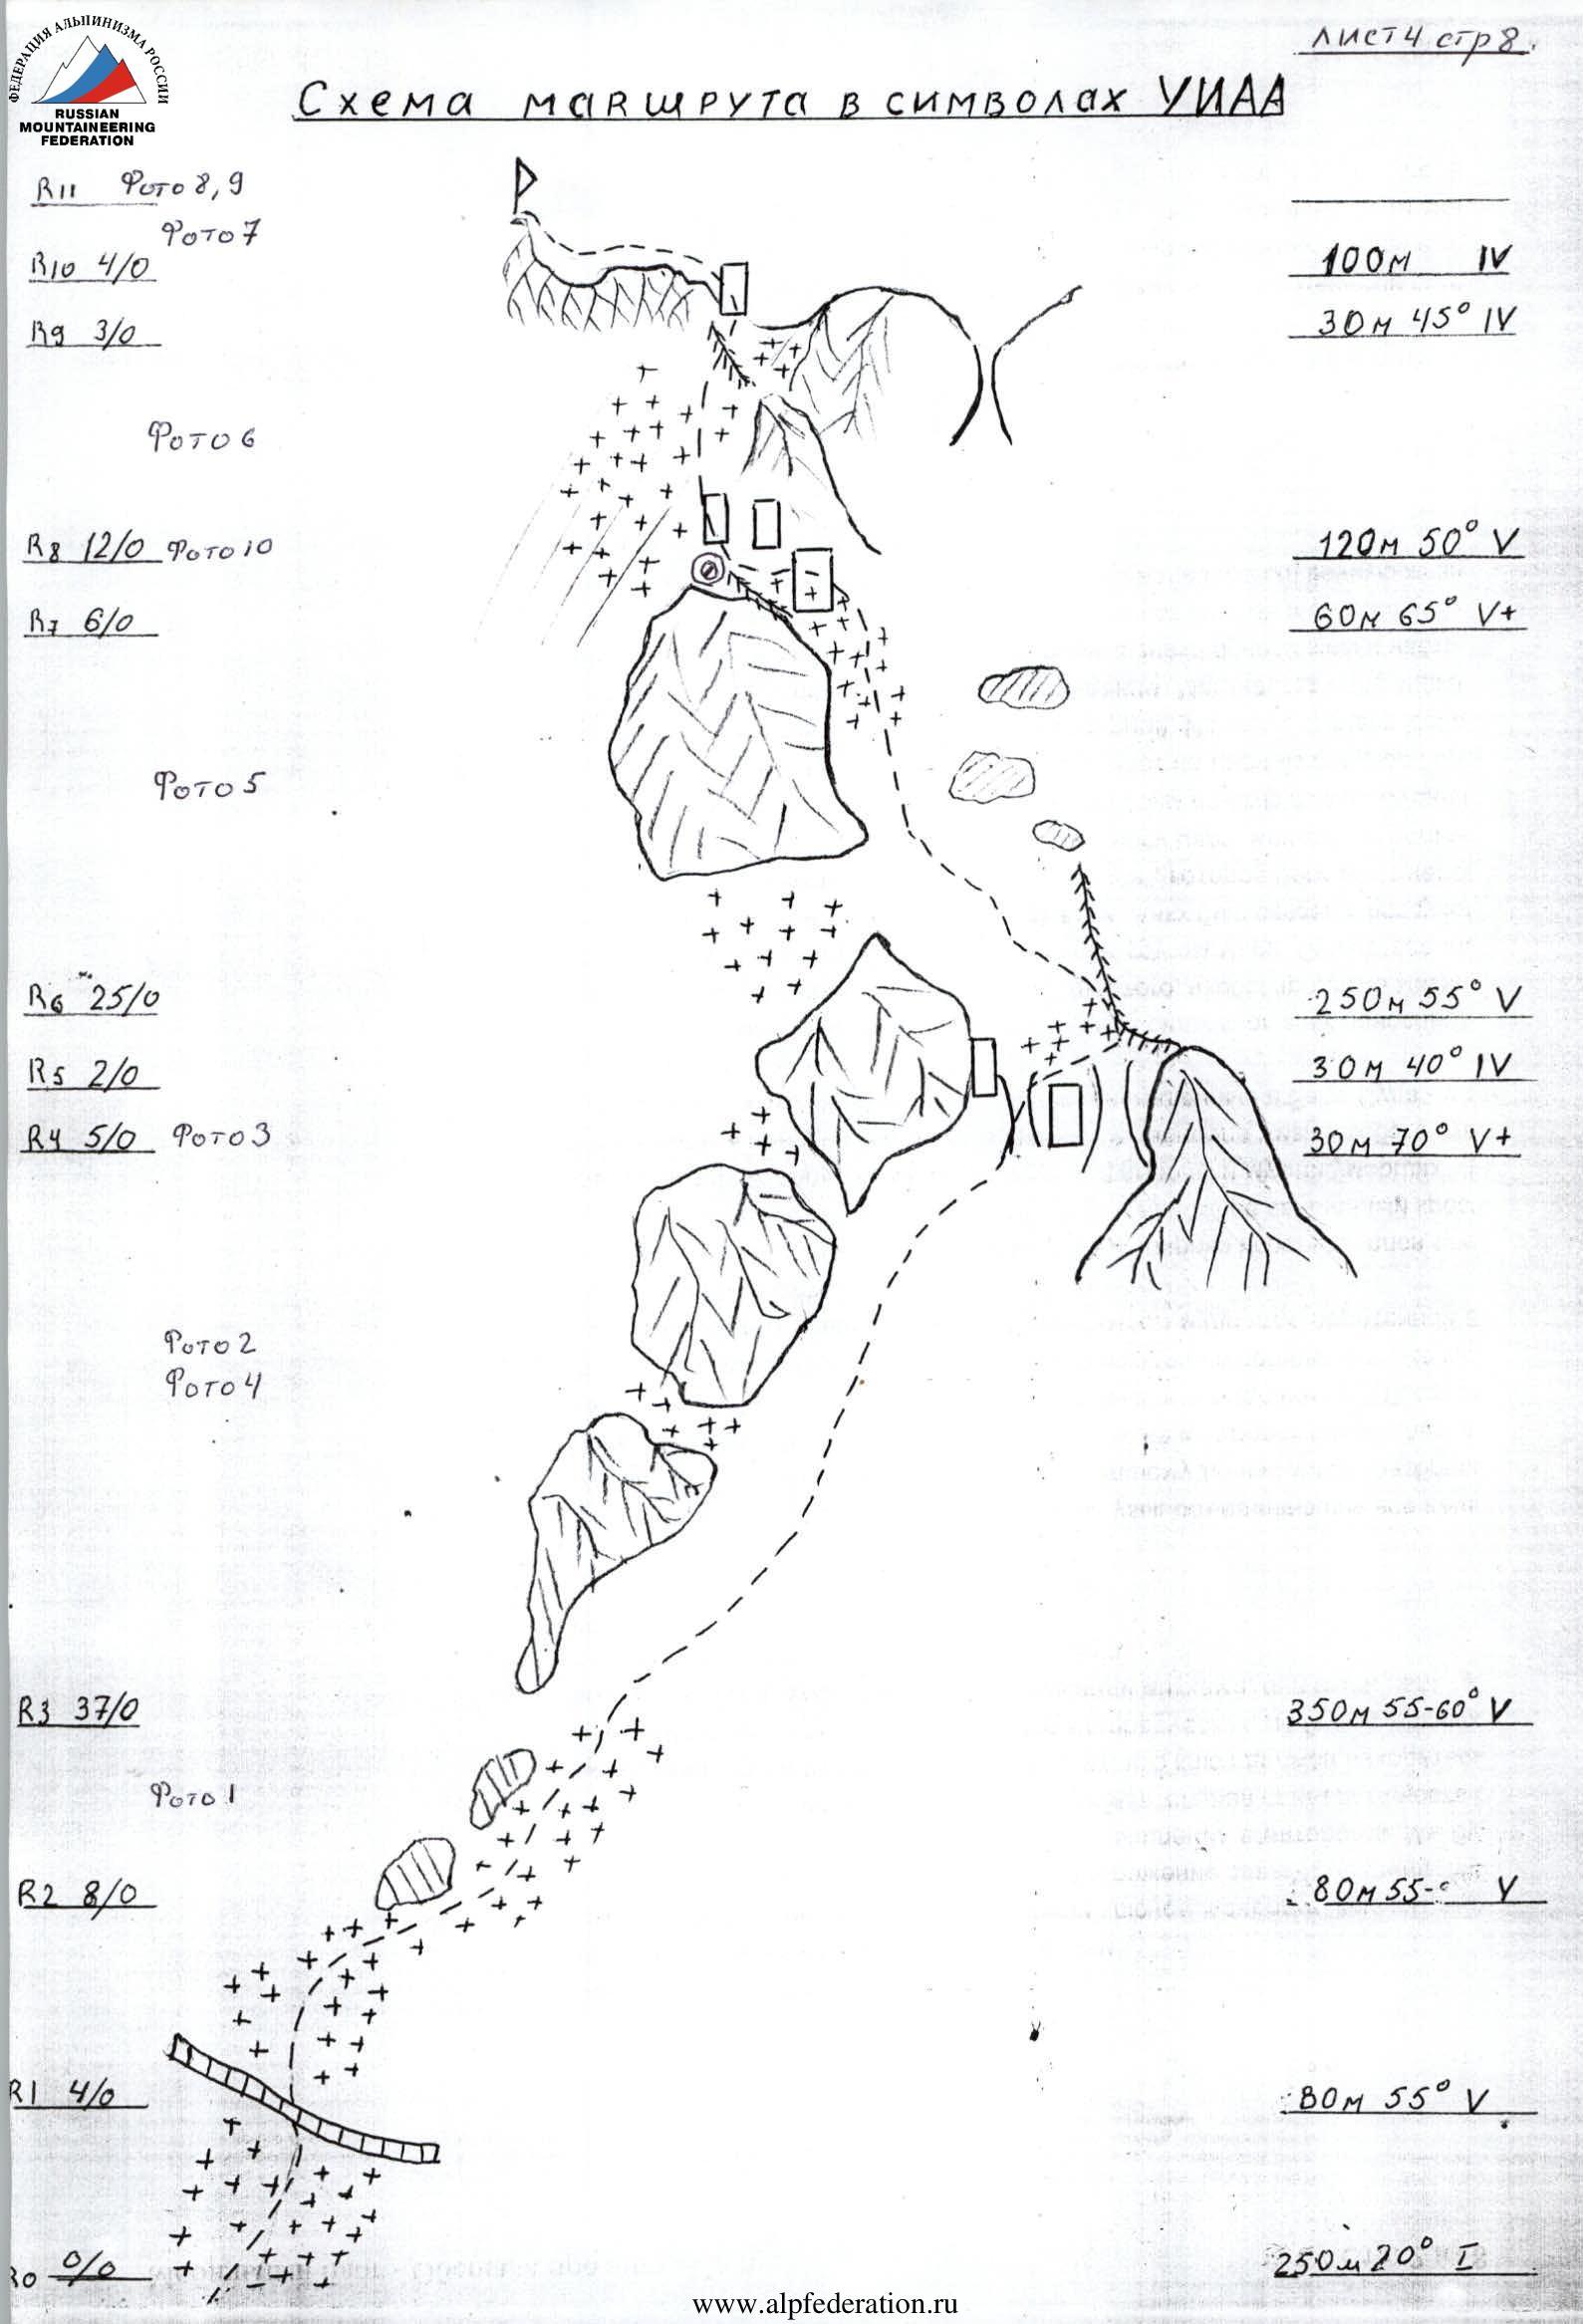 лист4 стр8.
ФЕДЕРАЦИЯ АЛЬПИНИЗМА РОССИИ
RUSSIAN
MOUNTAINEERING
FEDERATION
Схема маRшрута в символах УИАА
R11 Фото 8,9
Фото 7
R10 4/0 100м IV
R9 3/0 30м 45° IV
Фото 6
R8 12/0 Фото 10 120м 50° V
R7 6/0 60м 65° V+
Фото 5
R6 25/0 250м 55° V
R5 2/0 30м 40° IV
R4 5/0 Фото 3 30м 70° V+
Фото 2
Фото 4
R3 37/0 350м 55-60° V
Фото 1
R2 8/0 80м 55-° V
R1 4/0 80м 55° V
R0 0/0 250м 20° I
www.alpfederation.ru